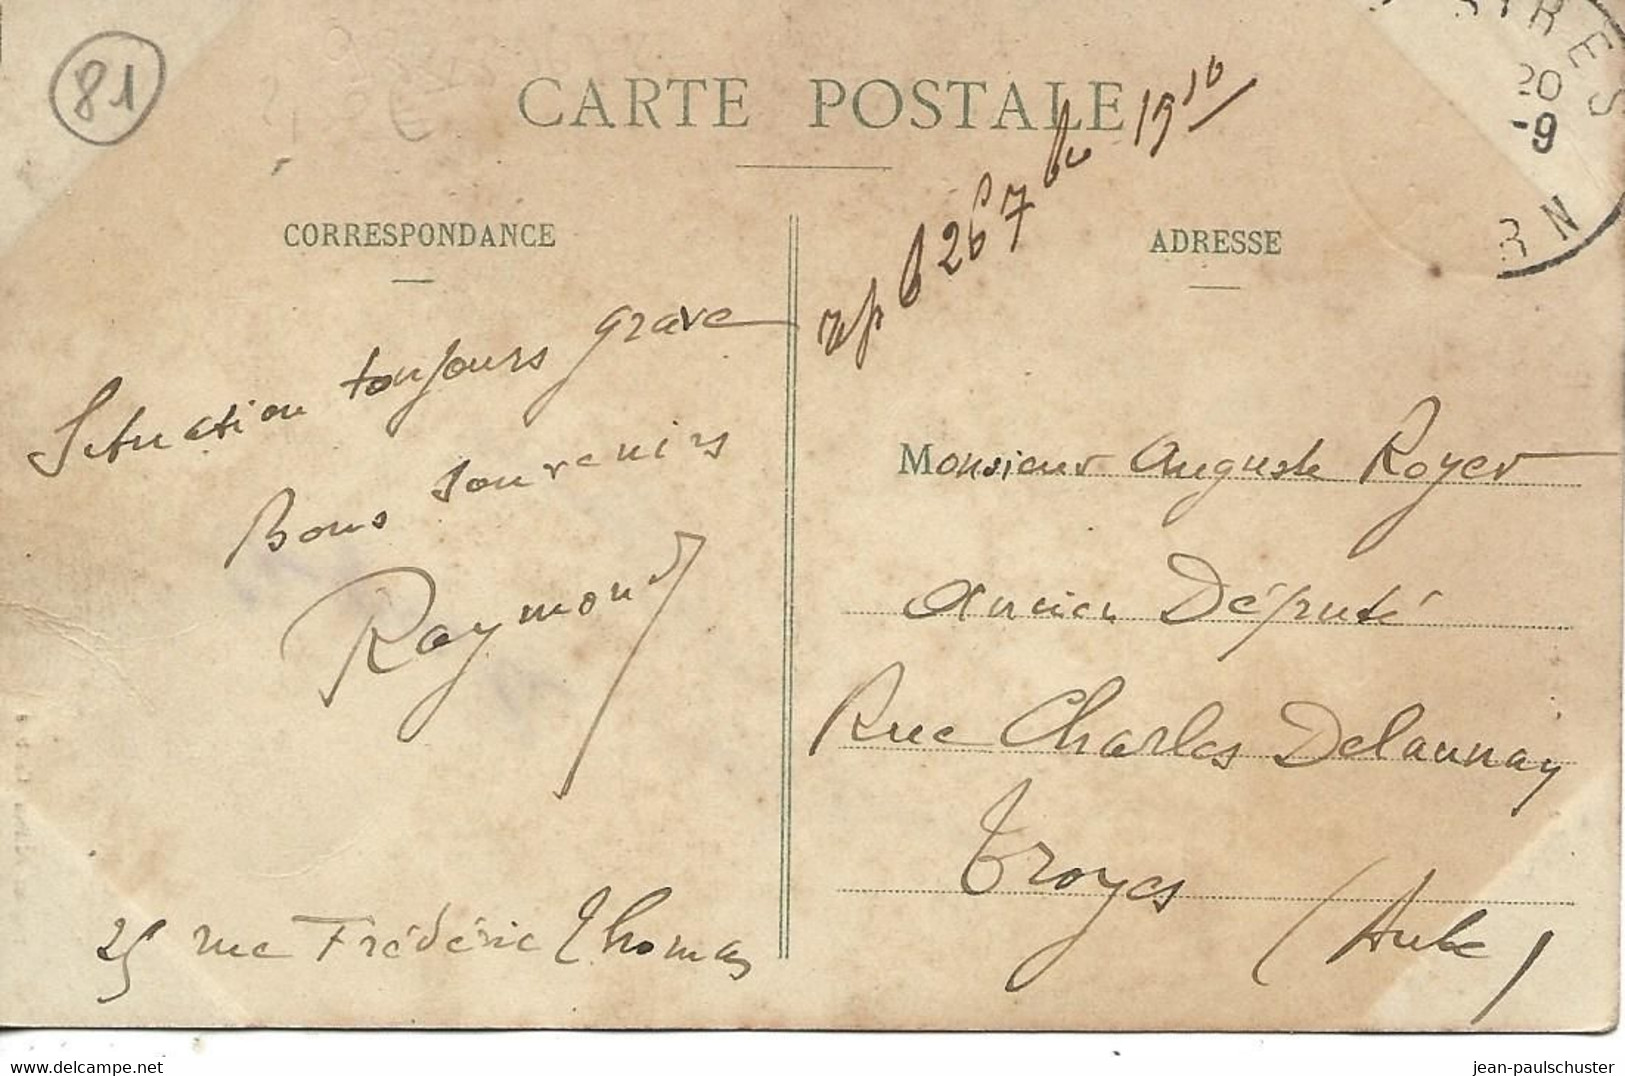 81
CARTE POSTALE
rép 6267 du 19 10
STRES
20
-9
RN
CORRESPONDANCE
Situation toujours grave
Bons souvenirs
Raymond
25 rue Frédéric Thomas
ADRESSE
Monsieur Auguste Royer
Ancien Député
Rue Charles Delaunay
Troyes
(Aube)
jean-paulschuster